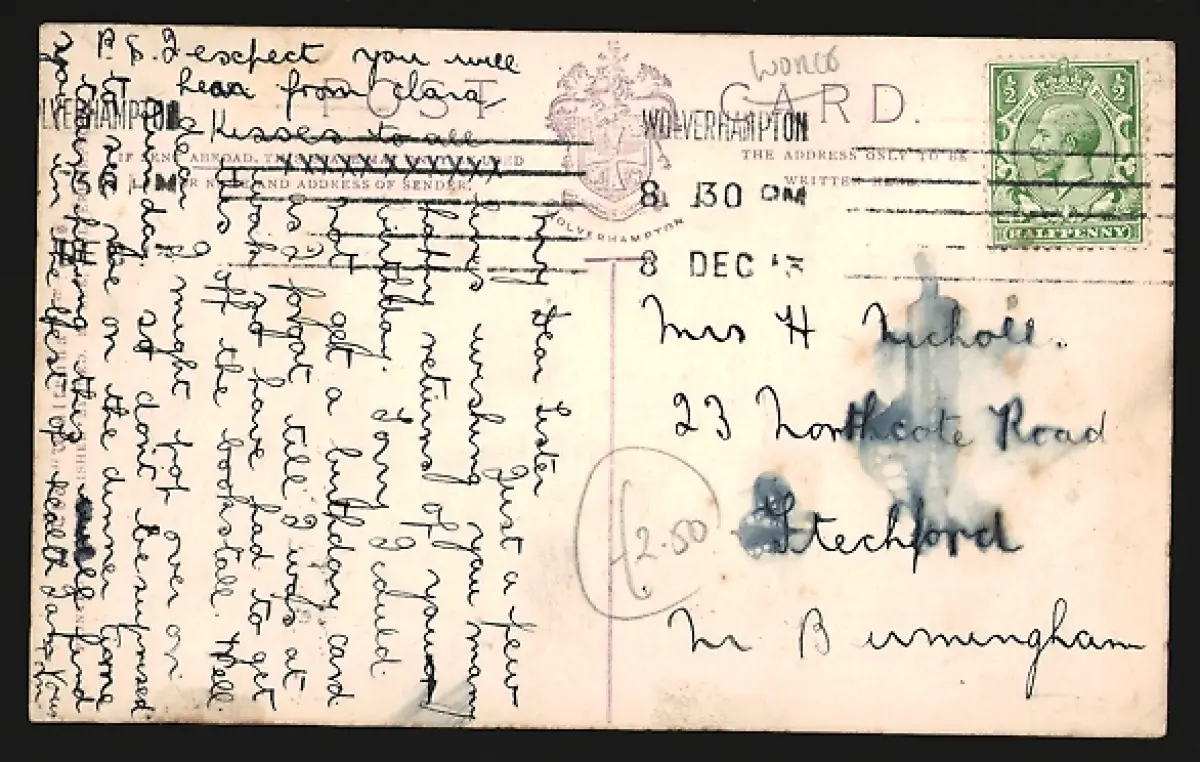 P.S. I expect you will
hear from Clara
Kisses to all
XXXXXXXXXXX
POST CARD.
THE ADDRESS ONLY TO BE
WRITTEN HERE.
AND ADDRESS OF SENDER.
WOLVERHAMPTON
WOLVERHAMPTON
8 30 PM
8 DEC
WOLVERHAMPTON
½ ½
HALFPENNY
Worcs
My Dear Sister
Just a few
lines wishing you many
happy returns of your
birthday. Sorry I could
not get a birthday card
as I forgot till I was at
work and have had to get
this off the bookstall. Well
dear I might pop over on
Sunday so dont be surprised
to see me on the dinner time
hoping this will find
you in the best of health
Mrs H Nicholl.
23 Northcote Road
Stechford
Nr Birmingham
£2.50